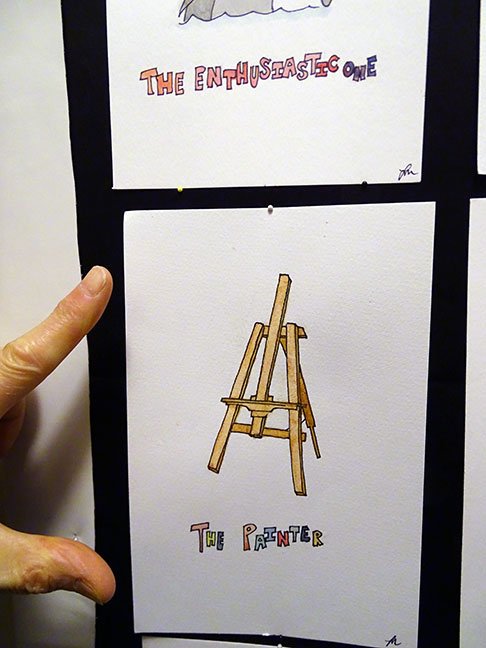 THE ENTHUSIASTIC ONE
THE PAINTER